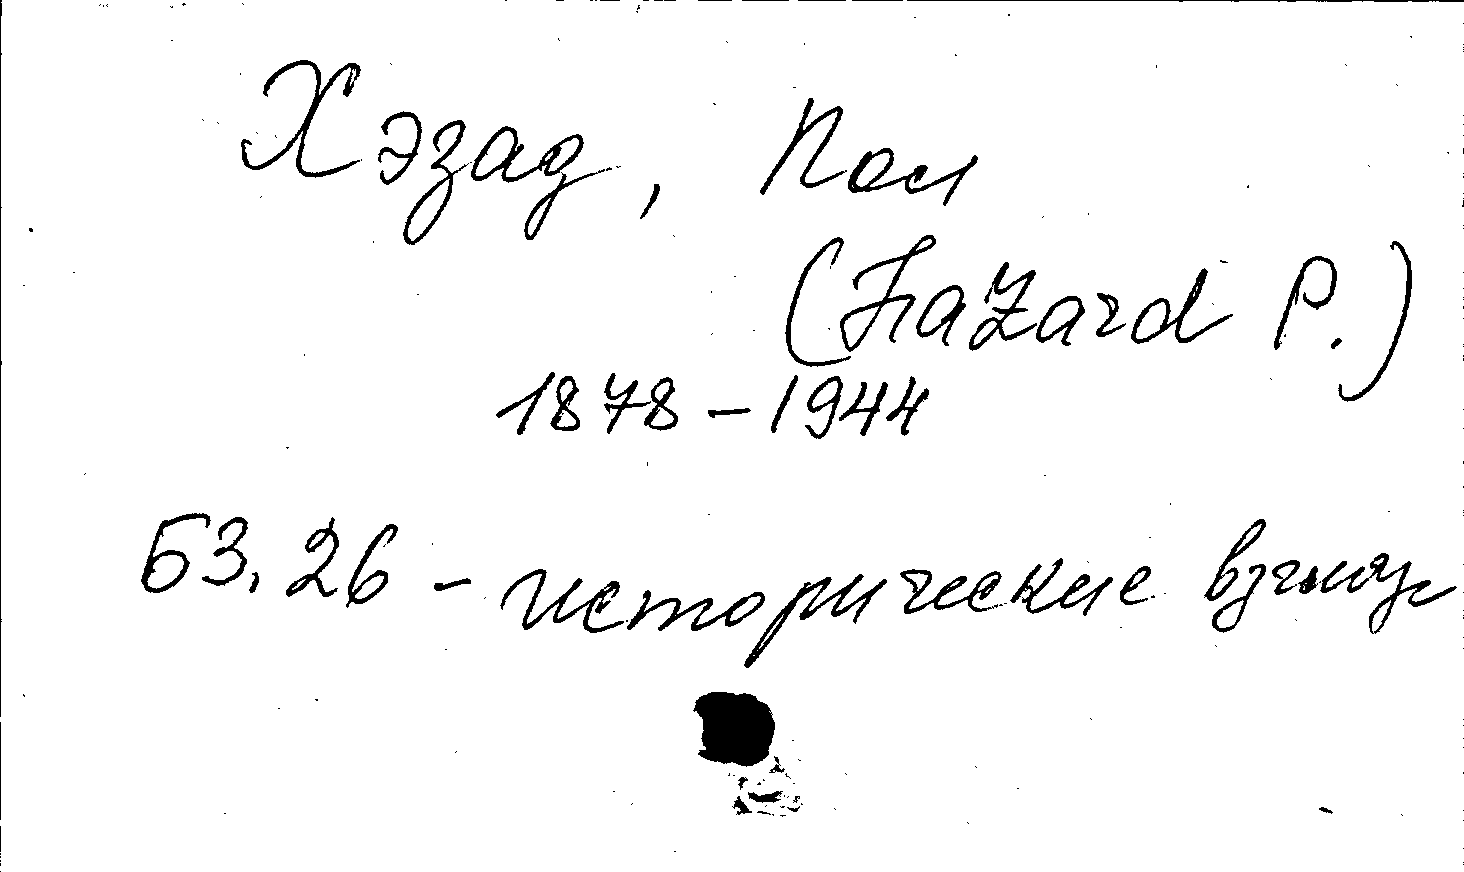 Хэзад, Пол
(Hazard P.)
1878-1944
Б3.26 - исторические взгляды